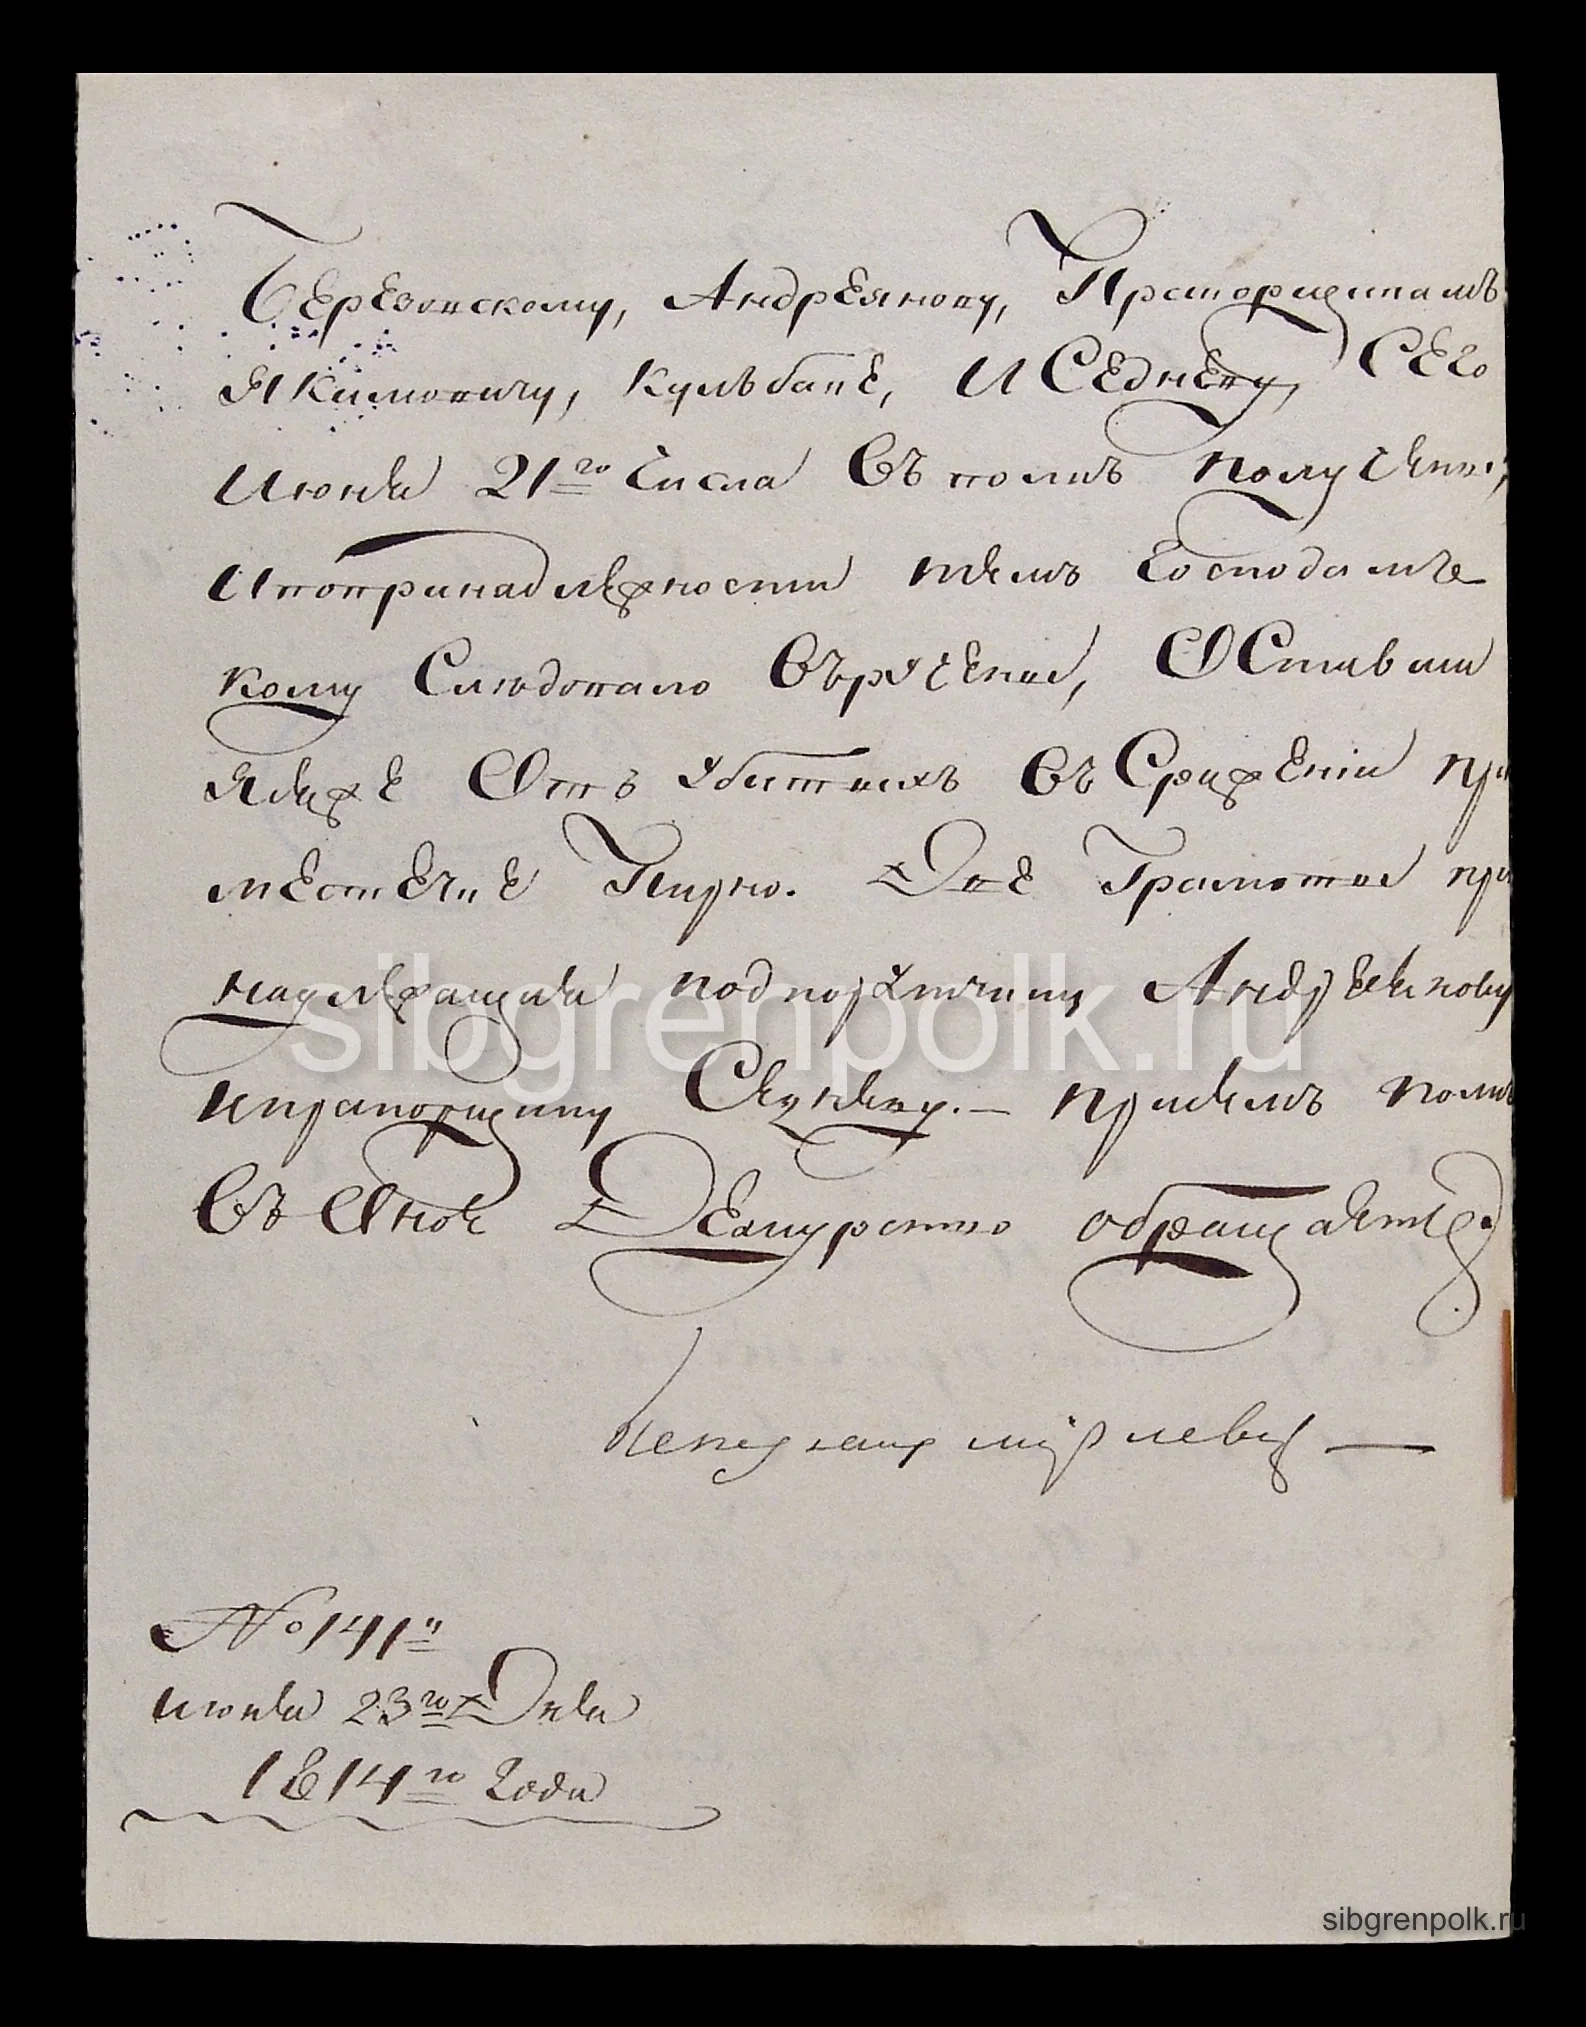 Березовскому, Андреянову, Прапорщикамъ
Якимовичу, Кульбаке, И Седневу, Сего
Июня 21го Числа Въ полкъ получены;
Ипопринадлежности темъ Господамъ
кому Следовало Въручены, Оставши
яся же Отъ Убитыхъ Въ Сражении при
местечке Кирно. Две Грамоты при
надлежащия подпорутчику Андреянову
ипрапорщику Седневу.— присемъ полкъ
Въ Оное Дежурство обращаетъ.
№ 141й
июня 23го Дня
1814го Года
sibgrenpolk.ru
sibgrenpolk.ru